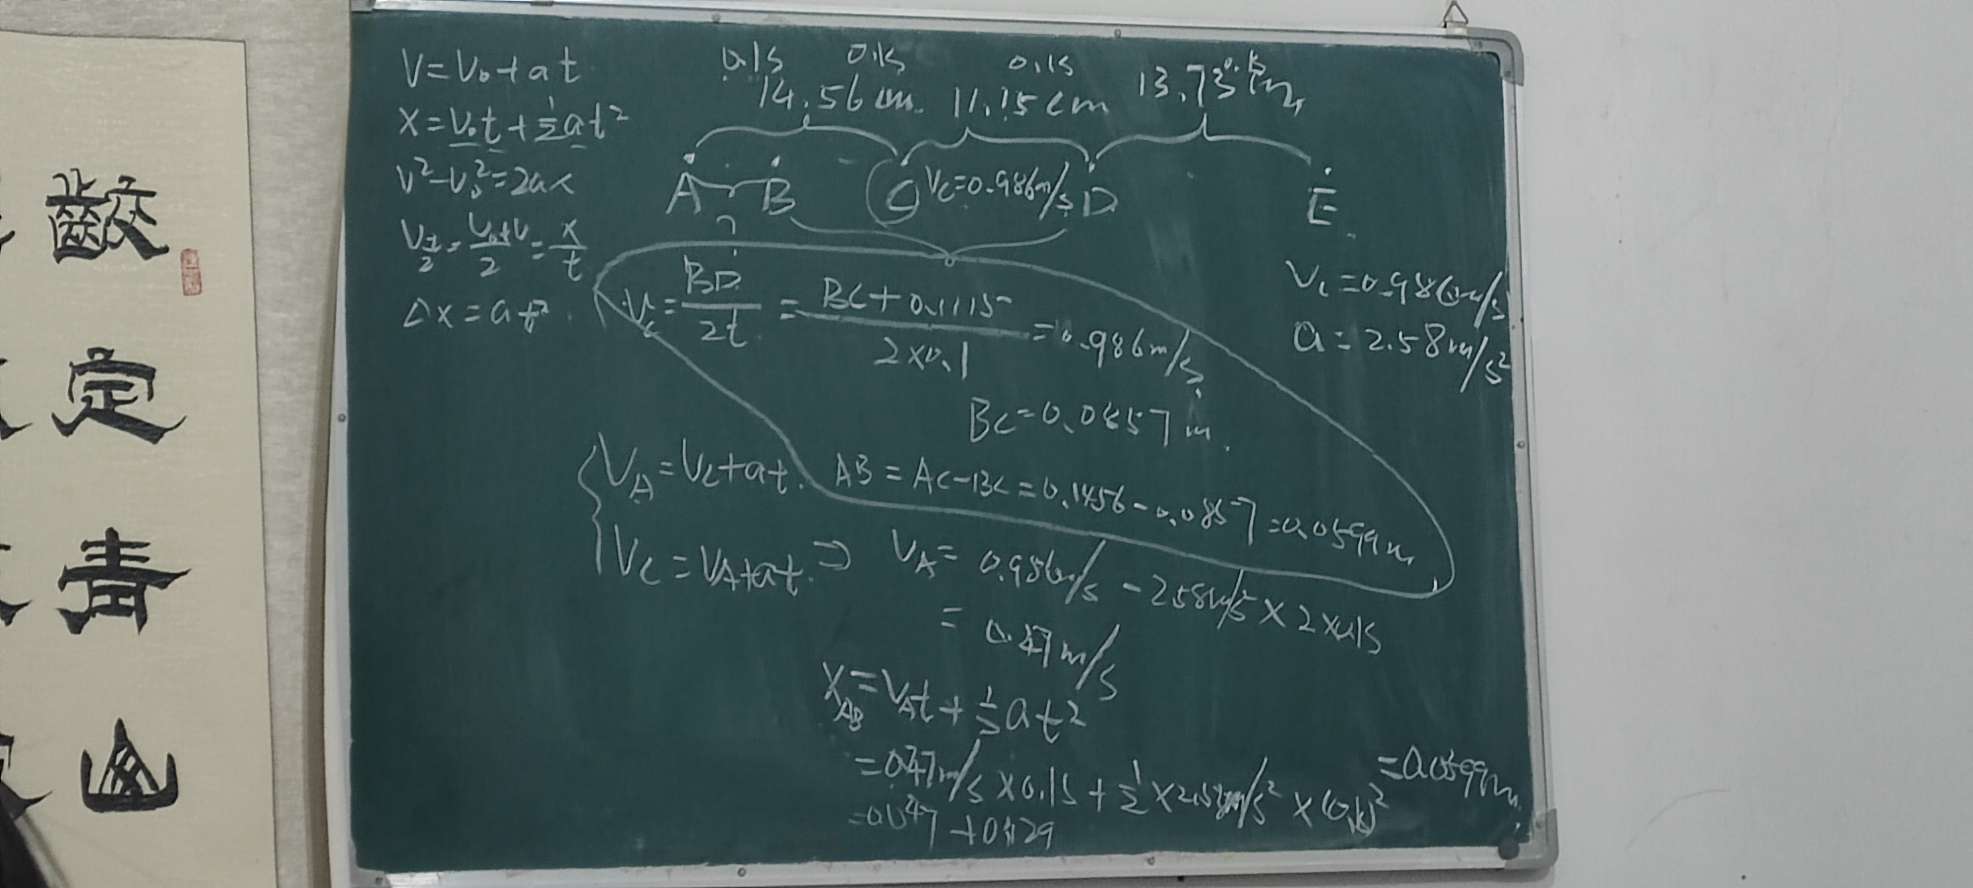 齾
定
青
山
V=V₀+at
X=V₀t+½at²
V²-V₀²=2ax
V_{t/2}=\frac{V₀+V}{2}=\frac{x}{t}
Δx=at²
0.1s 0.1s 0.1s 0.1s
14.56cm. 11.15cm 13.73cm
A B C V_C=0.986m/s D E
?
V_C=\frac{BD}{2t}=\frac{BC+0.1115}{2×0.1}=0.986m/s
BC=0.0857m.
AB=AC-BC=0.1456-0.0857=0.0599m
V_C=0.986m/s
a=2.58m/s²
V_A=V_C+at.
V_C=V_A+at. ⇒ V_A=0.986m/s-2.58m/s²×2×0.1s
=0.47m/s
X_{AB}=V_At+½at²
=0.47m/s×0.1s+½×2.58m/s²×(0.1s)²=0.0599m.
=0.047+0.0129